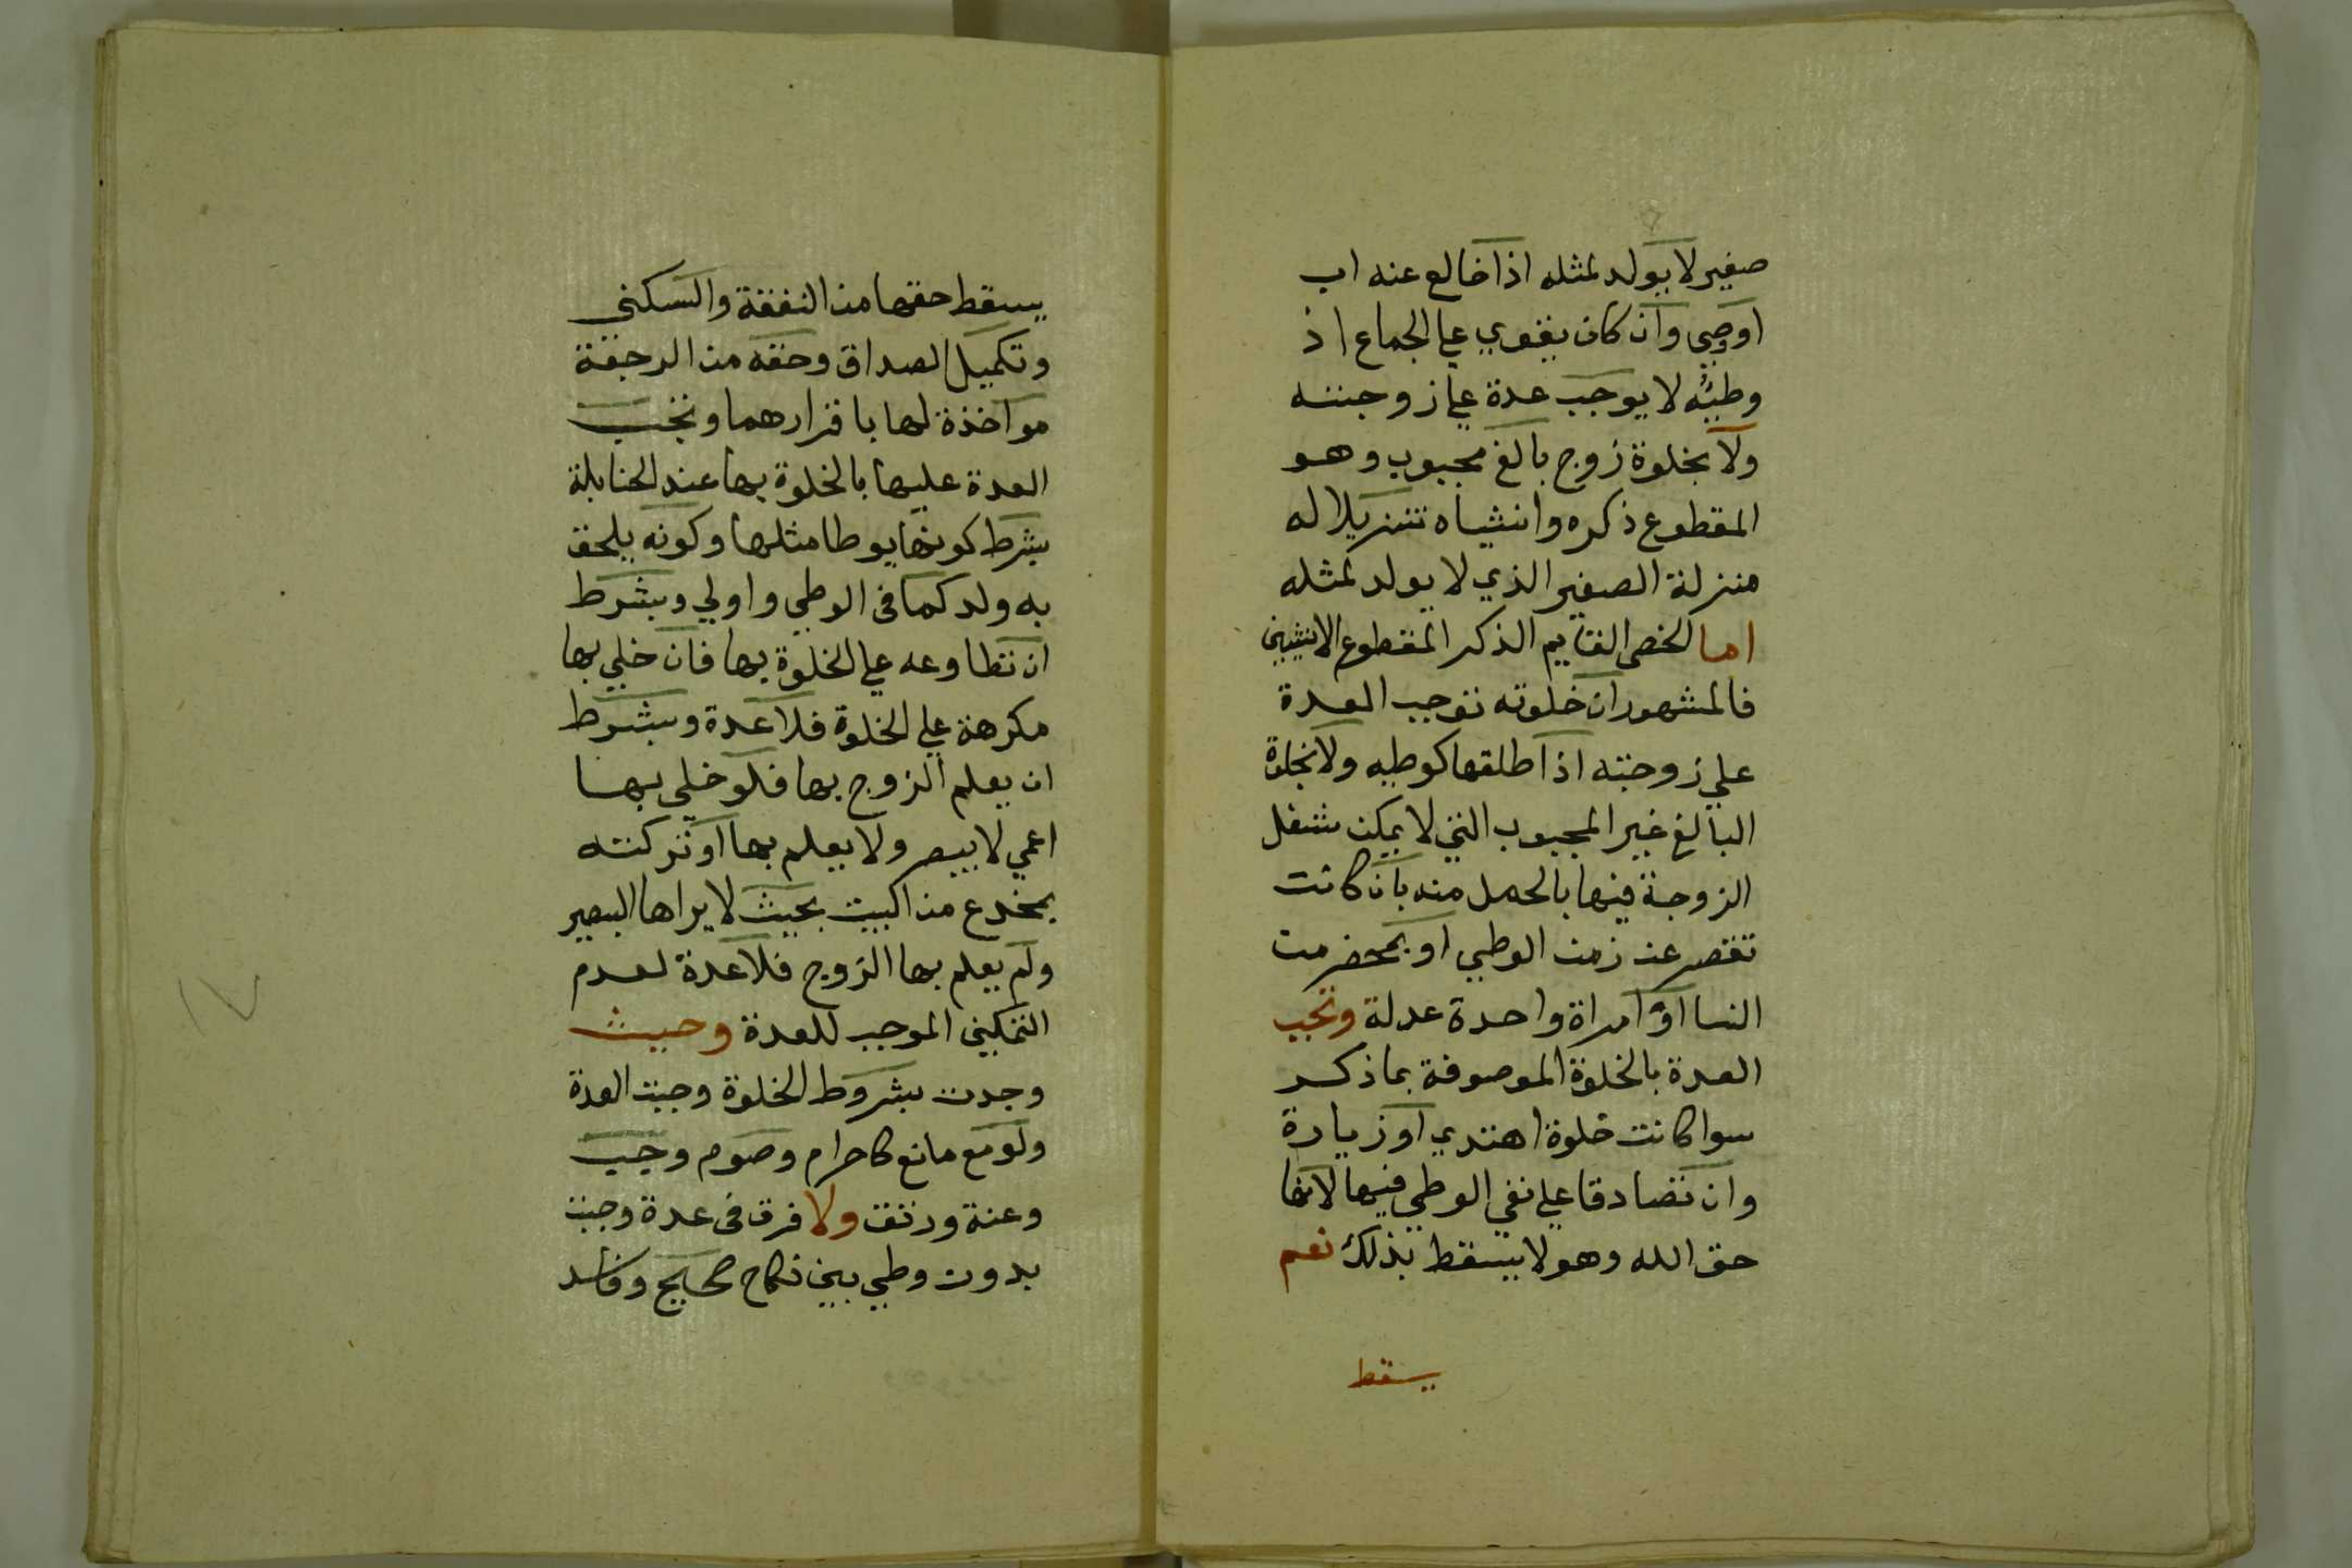 صغير لا يولد لمثله اذا خالع عنه اب
او وصي وان كان يقوي علي الجماع اذ
وطيئه لا يوجب عدة علي زوجته
ولا بخلوة زوج بالغ مجبوب وهو
المقطوع ذكره وانثياه تنزيلا له
منزلة الصغير الذي لا يولد لمثله
اما الخصي القايم الذكر المقطوع الانثيين
فالمشهور ان خلوته توجب العدة
علي زوجته اذا طلقها كوطيه ولا بخلوة
البالغ غير المجبوب التي لا يمكن شغل
الزوجة فيها بالحمل منه بان كانت
تقصر عن زمن الوطي او بمحضر من
النسا او امراة واحدة عدلة وتجب
العدة بالخلوة الموصوفة بما ذكر
سوا كانت خلوة اهتدي او زيارة
وان تصادقا علي نفي الوطي فيها لانها
حق الله وهو لا يسقط بذلك نعم
يسقط
يسقط حقها من النفقة والسكني
وتكميل الصداق وحقه من الرجعة
مواخذة لهما باقرارهما وتجب
العدة عليها بالخلوة بها عند الحنابلة
بشرط كونها يوطا مثلها وكونه يلحق
به ولد كما في الوطي واولي وبشرط
ان تطاوعه علي الخلوة بها فان خلي بها
مكرهة علي الخلوة فلا عدة وبشرط
ان يعلم الزوج بها فلو خلي بها
اعمي لا يبصر ولا يعلم بها او تركته
بمخدع من البيت بحيث لا يراها البصير
ولم يعلم بها الزوج فلا عدة لعدم
التمكين الموجب للعدة وحيث
وجدت بشروط الخلوة وجبت العدة
ولو مع مانع كاحرام وصوم وجب
وعنة ورتق ولا فرق في عدة وجبت
بدون وطي بين نكاح صحيح وفاسد
١٧